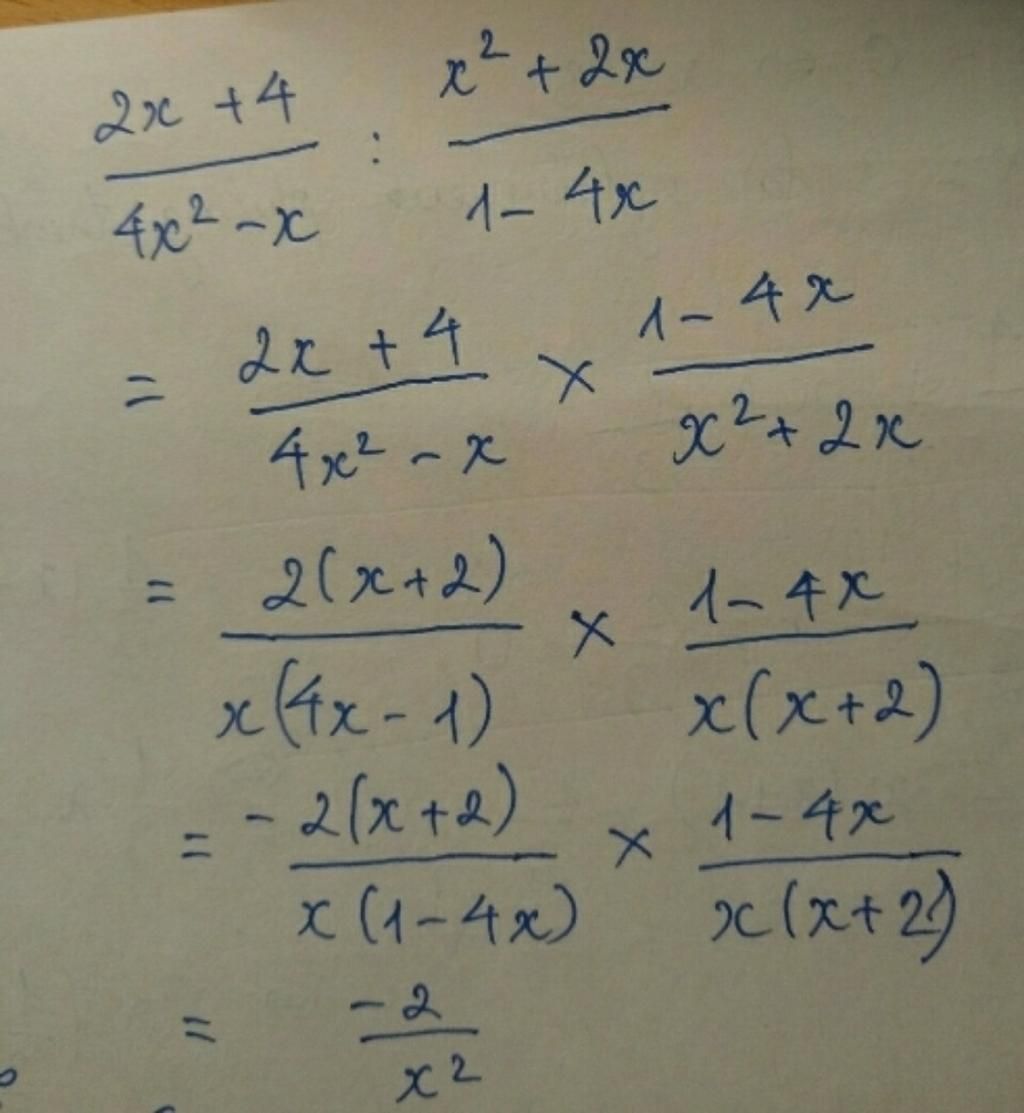 (2x + 4)/(4x² - x) : (x² + 2x)/(1 - 4x)
= (2x + 4)/(4x² - x) × (1 - 4x)/(x² + 2x)
= 2(x+2)/x(4x - 1) × (1 - 4x)/x(x+2)
= -2(x+2)/x(1 - 4x) × (1 - 4x)/x(x+2)
= -2/x²